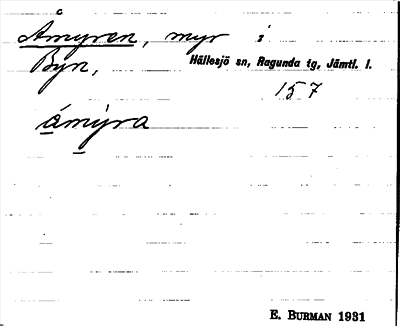 Åmyren, myr i
Byn, Hällesjö sn, Ragunda tg, Jämtl. l.
157
åmýra
E. BURMAN 1931